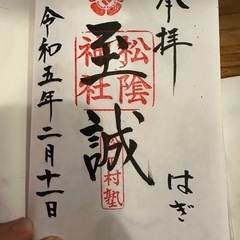 奉拝
はぎ
至誠
松陰
神社
村塾
令和五年二月十一日